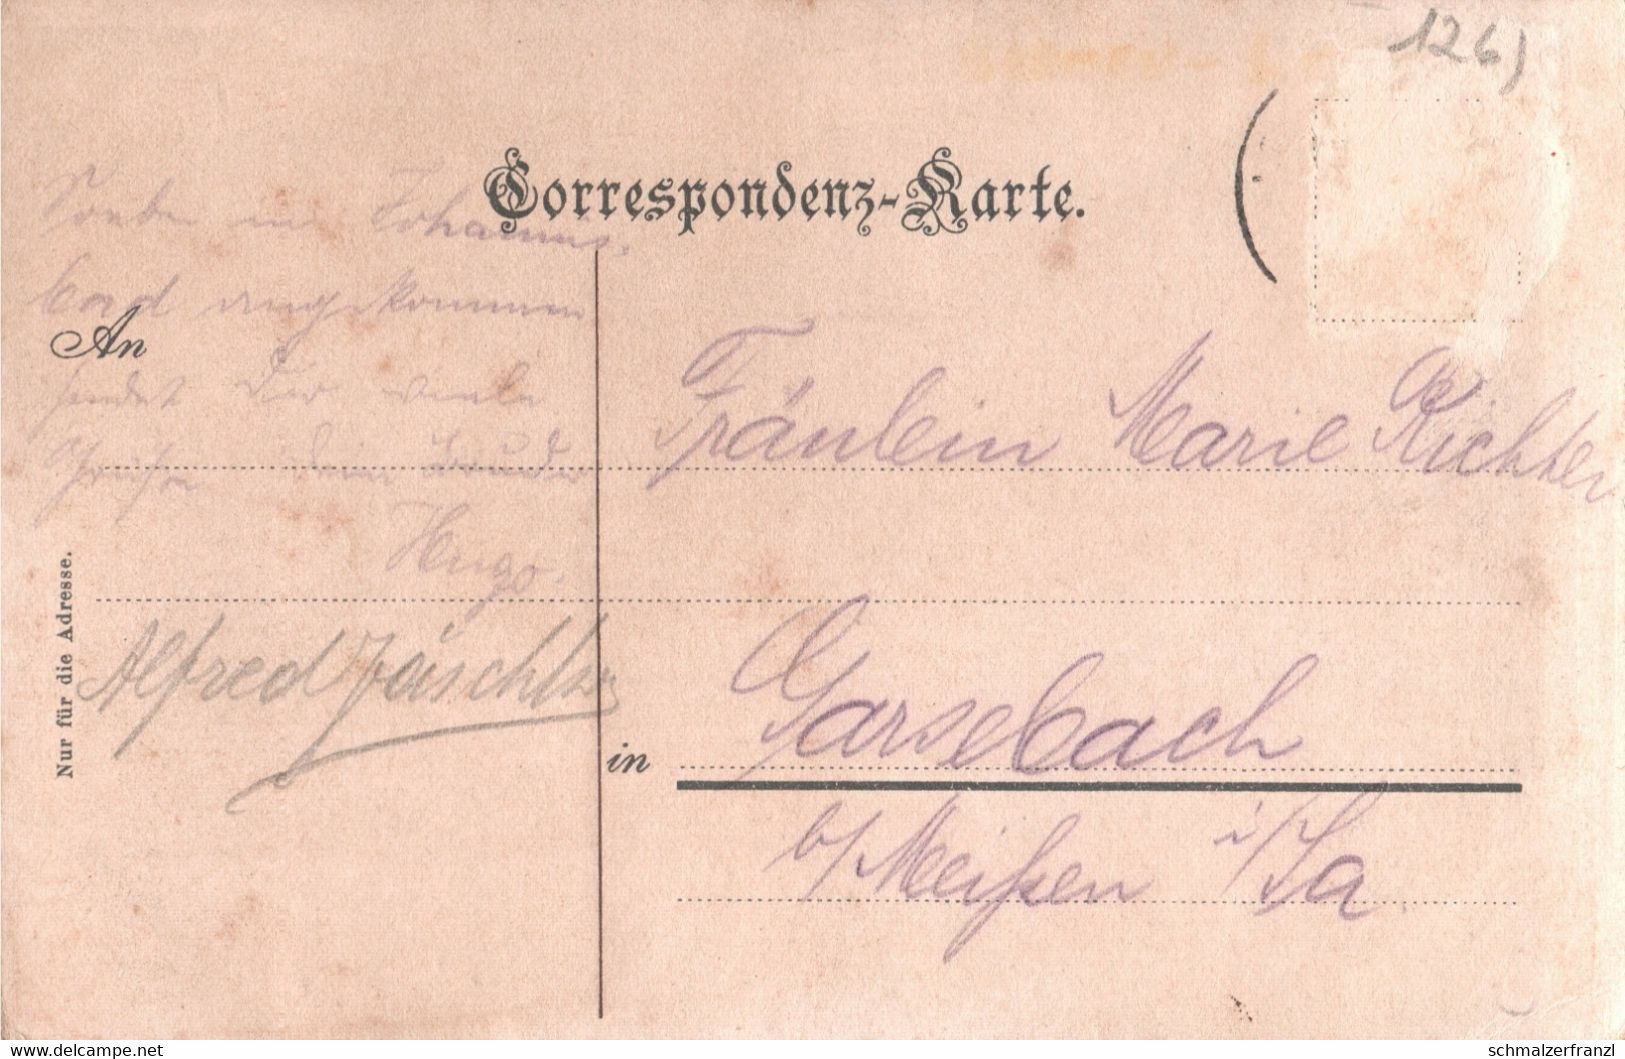 126)
Correspondenz-Karte.
in Johannis-
bad angekommen
An
sendet Dir viele
Grüße Dein Bruder
Hugo.
Fräulein Marie Richter
Nur für die Adresse.
Alfred
in Garsebach
b/Meißen i/Sa.
www.delcampe.net
schmalzerfranzl